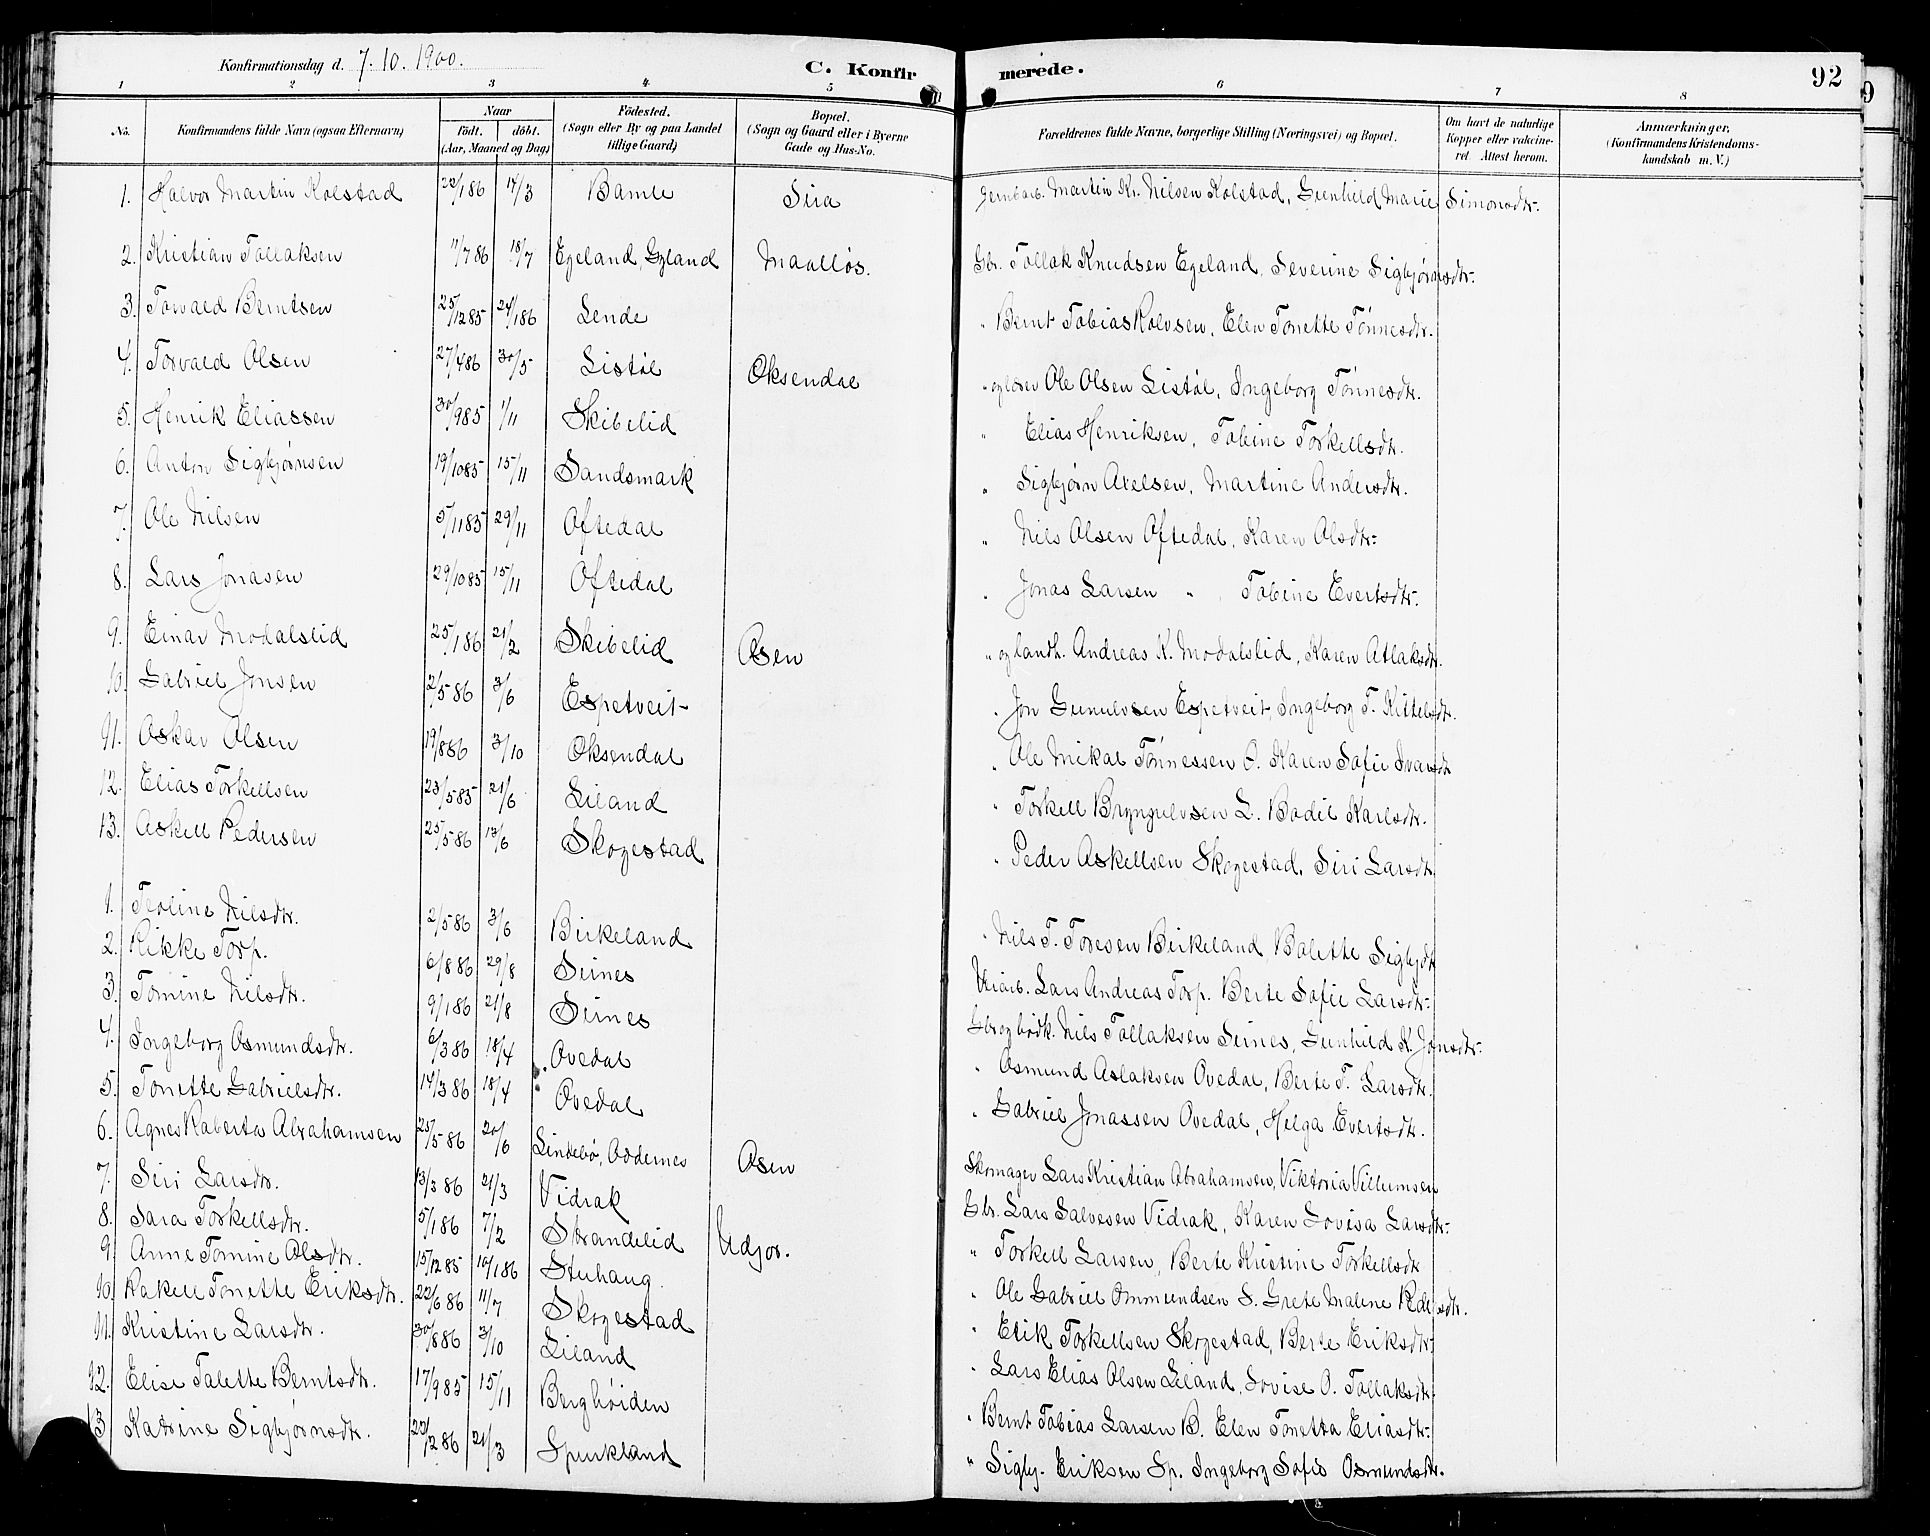 Konfirmationsdag d. 7.10.1900. C. Konfirmerede. 92
1 2 3 4 5 6 7 8
No. Konfirmandens fulde Navn (ogsaa Efternavn) Naar födt. döbt. (Aar, Maaned og Dag) Födested. (Sogn eller By og paa Landet tillige Gaard) Bopæl. (Sogn og Gaard eller i Byerne Gade og Hus-No. Forældrenes fulde Navne, borgerlige Stilling (Næringsvei) og Bopæl. Om havt de naturlige Kopper eller vakcineret. Attest herom. Anmærkninger. (Konfirmandens Kristendomskundskab m. V.)
1. Halvor Martin Kolstad 22/1 86 14/3 Bamle Sira Jernbarb. Martin Kr. Nilsen Kolstad, Gunhild Marie Simonsdtr.
2. Kristian Tollaksen 11/7 86 18/7 Egeland, Gyland Maalløs. Gbr. Tollak Knudsen Egeland, Severine Sigbjørnsdtr.
3. Torvald Berntsen 25/12 85 24/1 86 Lende " Bernt Tobias Rolvsen, Elen Tonette Tønnesdtr.
4. Torvald Olsen 27/4 86 30/5 Listøl Oksendal " og løsen Ole Olsen Listøl, Ingeborg Tønnesdtr.
5. Henrik Eliassen 30/9 85 1/11 Skibelid " Elias Henriksen, Tobine Torkellsdtr.
6. Anton Sigbjørnsen 19/10 85 15/11 Sandsmark " Sigbjørn Axelsen, Martine Andersdtr.
7. Ole Nilsen 5/11 85 29/11 Oftedal " Nils Olsen Oftedal, Karen Olsdtr.
8. Lars Jonasen 29/10 85 15/11 Oftedal " Jonas Larsen " , Tobine Evertsdtr.
9. Einar Modalslid 25/1 86 21/2 Skibelid Osen " og landh. Andreas K. Modalslid, Karen Atlaksdtr.
10. Gabriel Jonsen 2/5 86 3/6 Espetveit " Jon Gunulvsen Espetveit, Ingeborg T. Kittelsdtr.
11. Oskar Olsen 19/8 86 3/10 Oksendal " Ole Mikal Tønnessen O. Karen Sofie Ivarsdtr
12. Elias Torkellsen 23/5 85 21/6 Liland " Torkell Bryngulvsen L. Bodil Karlsdtr.
13. Askell Pedersen 25/5 86 13/6 Skogestad " Peder Askellsen Skogestad, Siri Larsdtr.
1. Teoline Nilsdtr. 2/5 86 3/6 Birkeland " Nils T. Toresen Birkeland Bolette Sigbjdtr
2. Rikke Torp. 6/8 86 29/8 Sirnes Lars Andreas Torp. Berte Sofie Larsdtr.
3. Tomine Nilsdtr. 9/1 86 21/8 Sirnes Gbr og bødk. Nils Tollaksen Sirnes, Gunhild K. Jonsdtr.
4. Ingeborg Osmundsdtr. 6/3 86 18/4 Ovedal " Osmund Aslaksen Ovedal, Berte T. Larsdtr.
5. Tonette Gabrielsdtr. 14/3 86 18/4 Ovedal " Gabriel Jonassen Ovedal, Helga Evertsdtr.
6. Agnes Roberta Abrahamsen 25/5 86 20/6 Lindebø, Oddernes Osen Skomager Lars Kristian Abrahamsen, Viktoria Vilhumsen
7. Siri Larsdtr. 13/3 86 21/3 Vidrak Gbr. Lars Salvesen Vidrak, Karen Lovisa Larsdtr.
8. Sara Torkellsdtr. 5/1 86 7/2 Strandelid Udjor. " Torkell Larsen, Berte Kristine Torkellsdtr
9. Anne Tomine Olsdtr. 15/12 85 10/1 86 Stuhaug " Ole Gabriel Ommundsen S. Grete Malene
10. Rakell Tonette Eriksdtr. 22/6 86 11/7 Skogestad " Erik Torkellsen Skogestad, Berte Eriksdtr.
11. Kristine Larsdtr. 30/8 86 3/10 Liland " Lars Elias Olsen Liland, Lovise O. Tollaksdtr.
12. Elise Talette Berntsdtr. 17/9 85 15/11 Berghøiden " Bernt Tobias Larsen B. Elen Tonetta Eliasdtr.
13 Katrine Sigbjørnsdtr. 23/12 86 21/3 Spurkland " Sigbj. Eriksen Sp. Ingeborg Sofie Osmundsdtr.